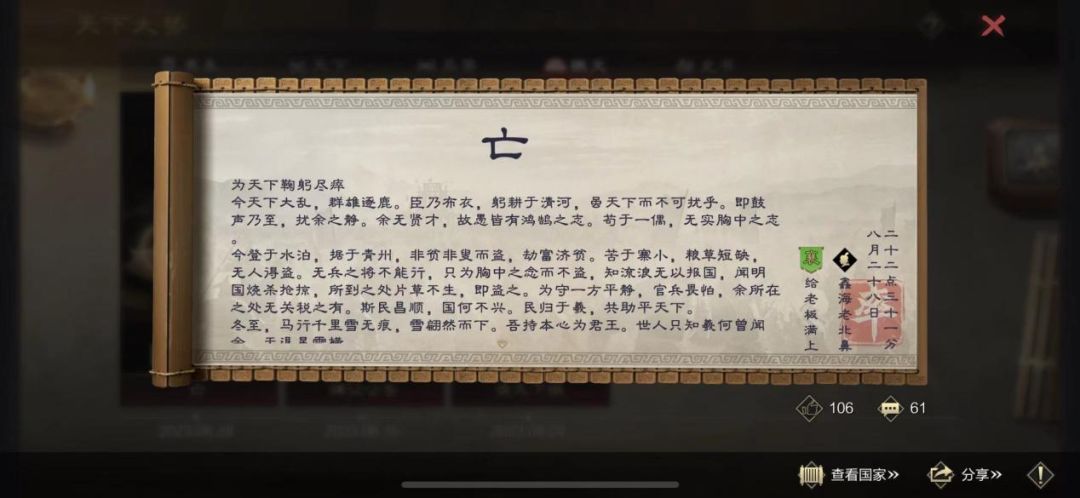 亡
为天下鞠躬尽瘁
今天下大乱，群雄逐鹿。臣乃布衣，躬耕于清河，虽天下而不可扰乎。即鼓
声乃至，扰余之静。余无贤才，故愚皆有鸿鹄之志。苟于一偶，无实胸中之志
。
今登于水泊，据于青州，非贫非叟而盗，劫富济贫。苦于寨小，粮草短缺，
无人得盗。无兵之将不能行，只为胸中之念而不盗，知流浪无以报国，闻明
国烧杀抢掠，所到之处片草不生，即盗之。为守一方平静，官兵畏怕，余所在
之处无关税之有。斯民昌顺，国何不兴。民归于義，共助平天下。
冬至，马行千里雪无痕，雪翩然而下。吾持本心为君王。世人只知義何曾闻
二十二点三十一分
八月二十八日
鑫海老北鼻
襄
给老板满上
106
61
查看国家»
分享»